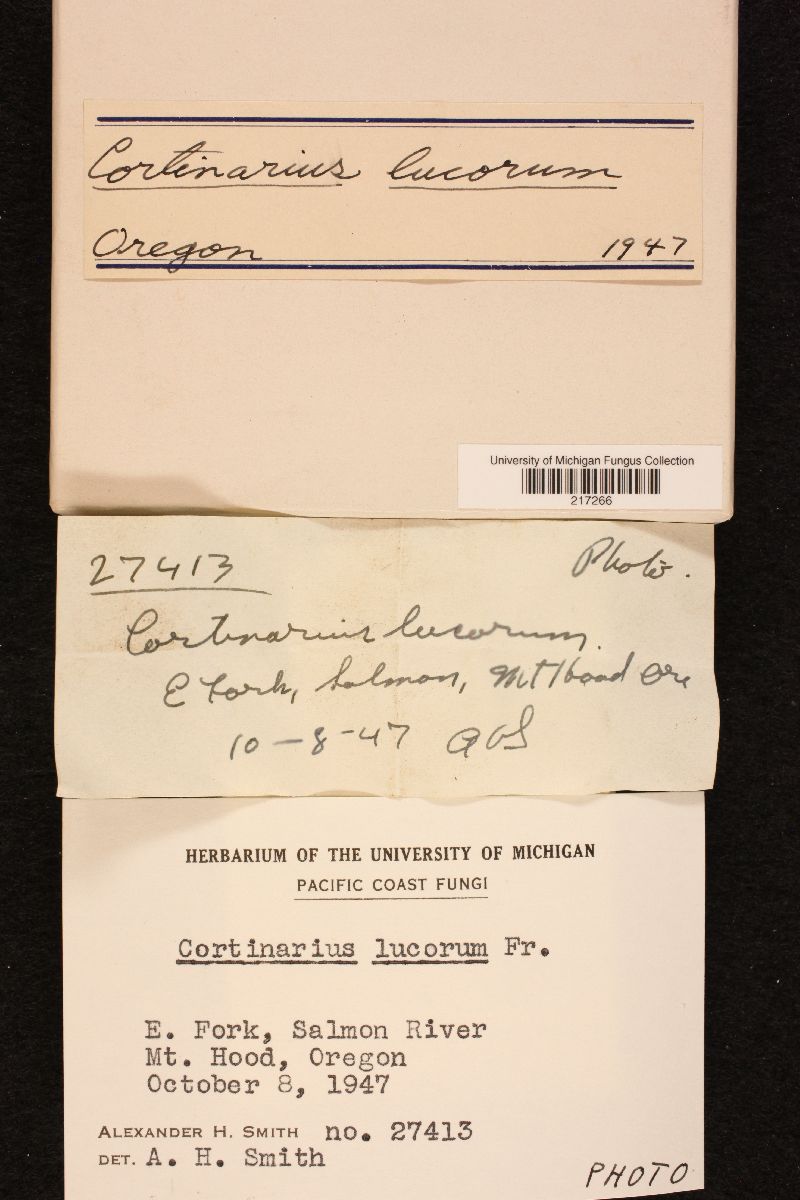 Cortinarius lucorum
Oregon 1947
University of Michigan Fungus Collection
217266
27413 Photo.
Cortinarius lucorum.
E Fork, Salmon, Mt Hood Ore
10-8-47 AHS
HERBARIUM OF THE UNIVERSITY OF MICHIGAN
PACIFIC COAST FUNGI
Cortinarius lucorum Fr.
E. Fork, Salmon River
Mt. Hood, Oregon
October 8, 1947
ALEXANDER H. SMITH no. 27413
DET. A. H. Smith
PHOTO